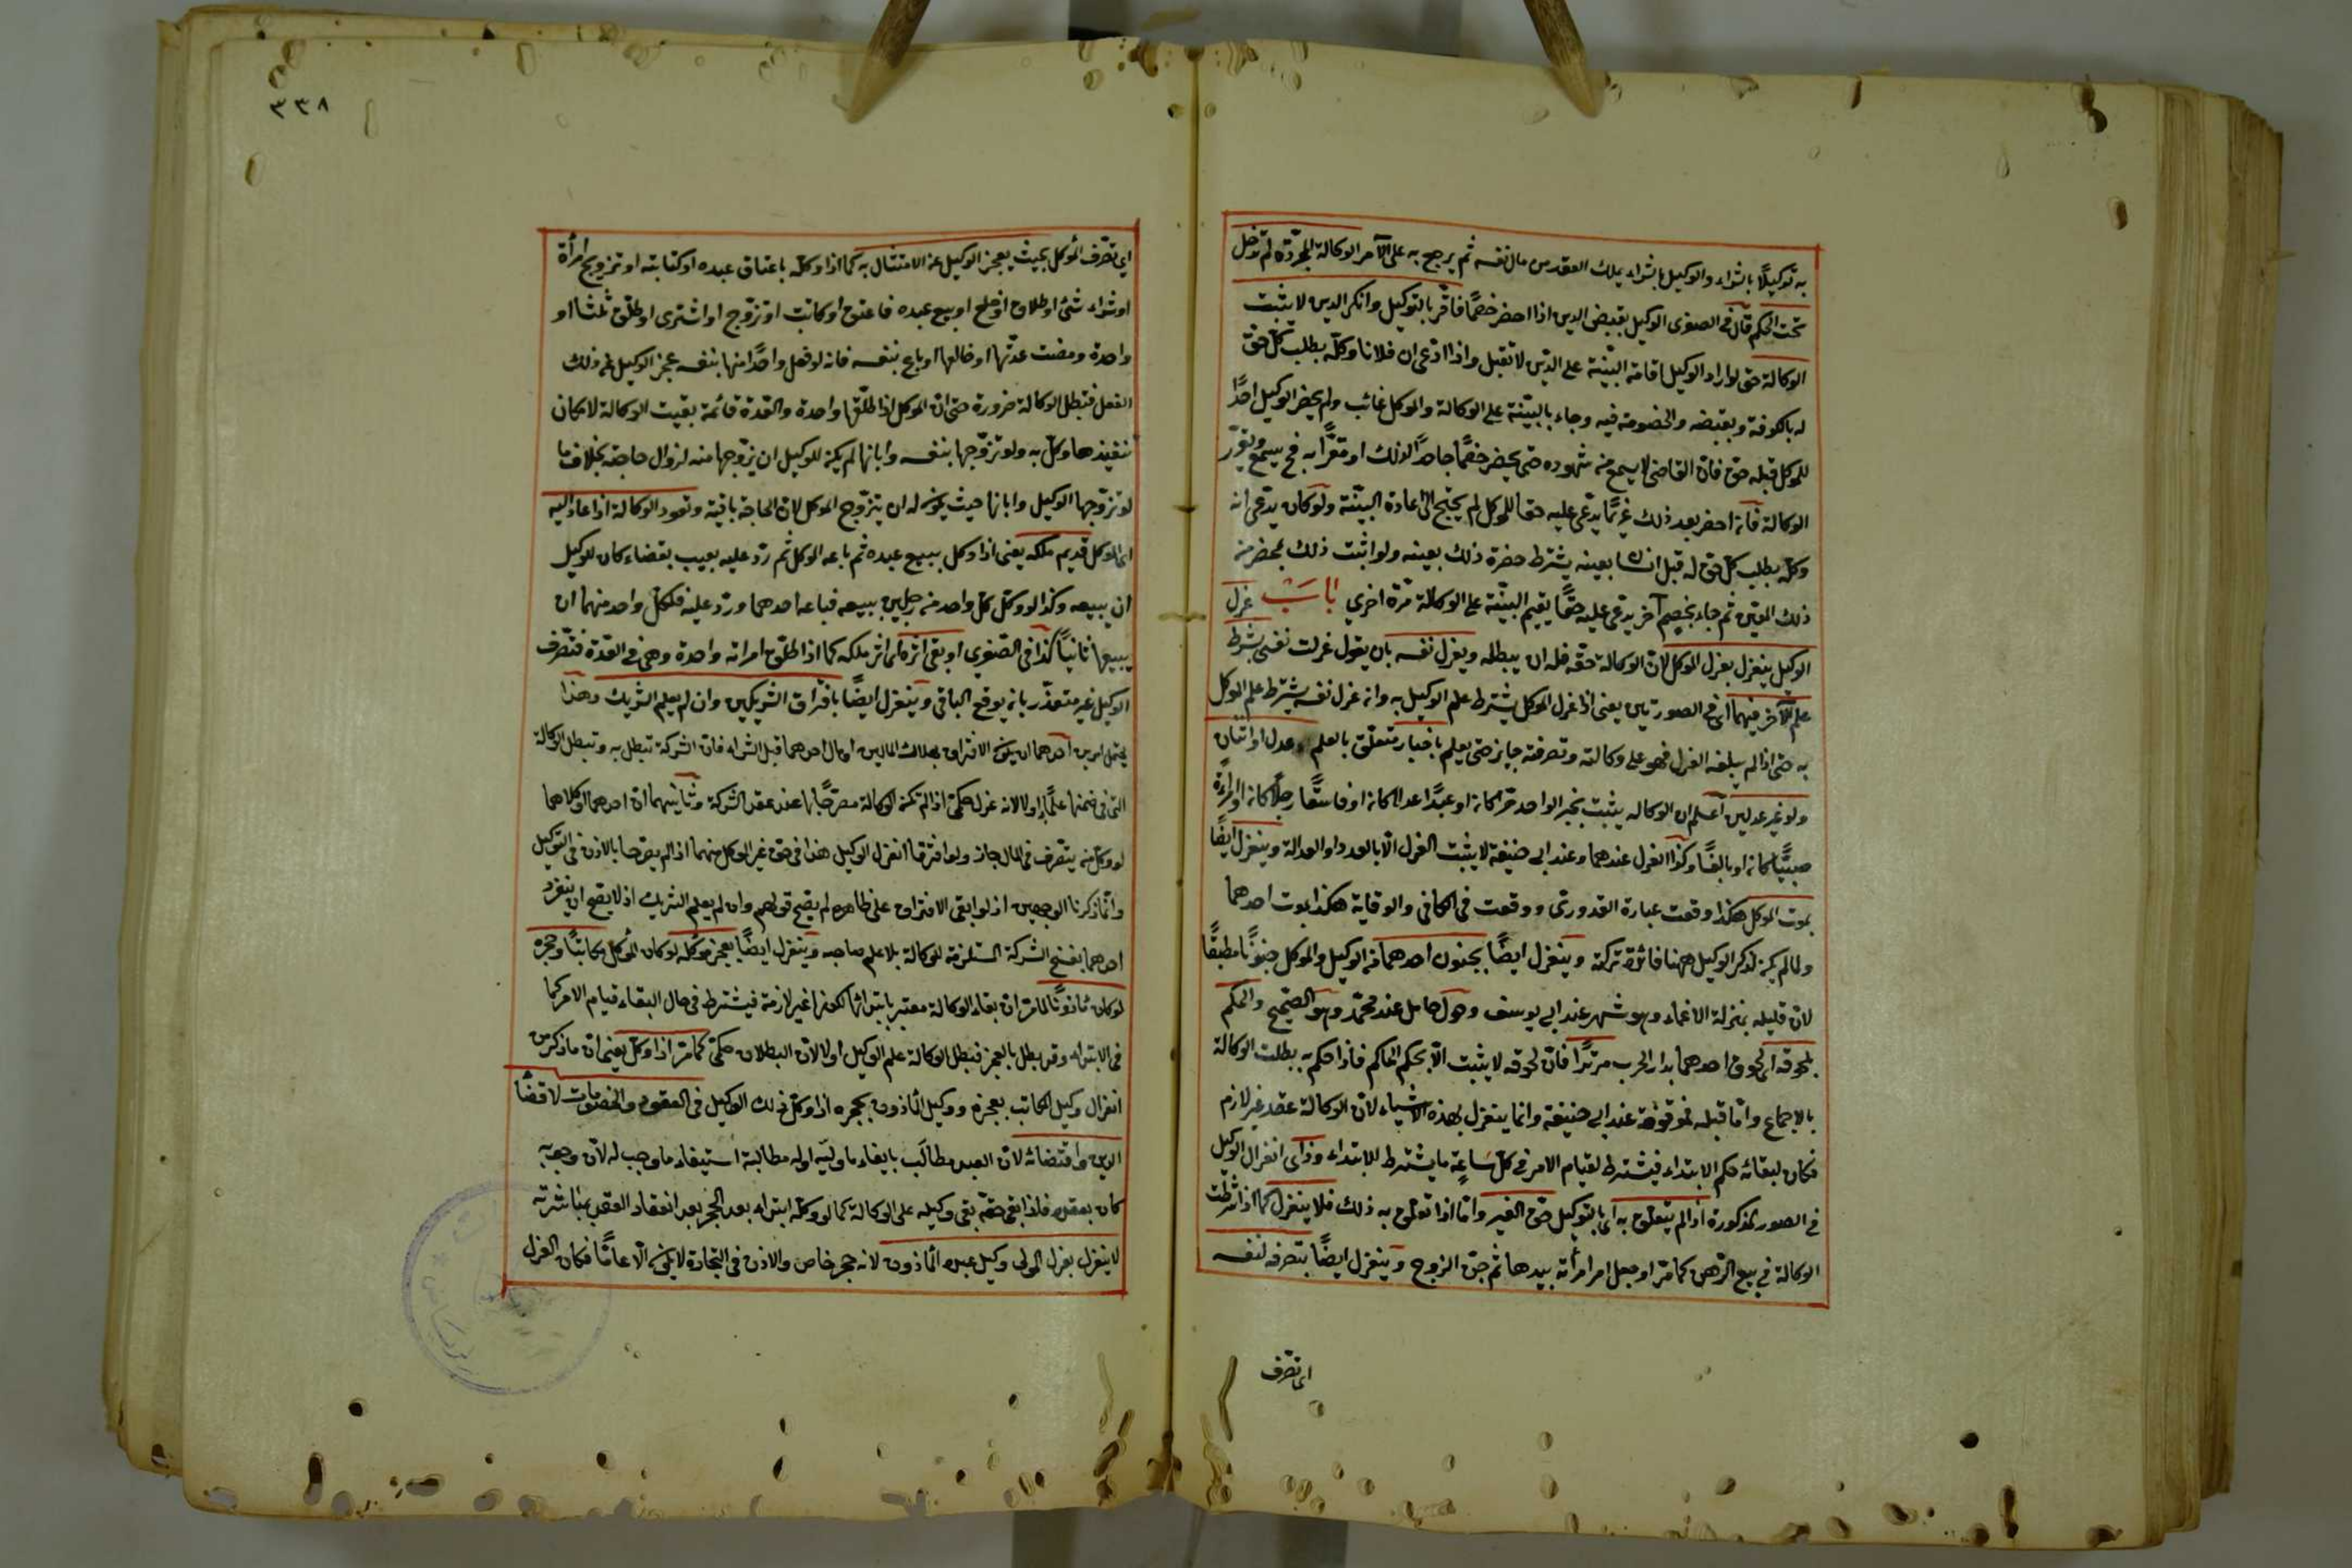 به توكيلًا بالشراء والوكيل بالشراء يملك العقد من مال نفسه ثم يرجع به على الآمر الوكالة المجرّدة لم تدخل
تحت الحكم قال فى الصغرى الوكيل بقبض الدين اذا احضر خصمًا فاقرّ بالتوكيل وانكر الدين لا يثبت
الوكالة حتى لو اراد الوكيل اقامة البيّنة على الدّين لا تقبل واذا ادّعى ان فلانا وكلّه بطلب كلّ حقّ
له بالكوفة وبقبضه والخصومة فيه وجاء بالبيّنة على الوكالة والموكل غائب ولم يحضر الوكيل احدًا
للموكل قبله حق فان القاضى لا يسمع من شهوده حتى يحضر خصمًا جاحدًا لذلك او مقرًّا به فح يسمع ويقرّر
الوكالة فان احضر بعد ذلك غريمًا يدّعى عليه حقا للموكل لم يحتج الى اعادة البيّنة ولو كان يدّعى انه
وكلّه بطلب كلّ حق له قبل انسان بعينه يشترط حضرة ذلك بعينه ولو اثبت ذلك بمحضر من
ذلك المعيّن ثم جاء بخصم آخر يدّعى عليه حقًّا يقيم البيّنة على الوكالة مرّة اخرى باب عزل
الوكيل ينعزل بعزل الموكل لانّ الوكالة حقّه فله ان يبطله ويعزل نفسه بان يقول عزلت نفسى بشرط
علم الآخر منهما اى فى الصورتين يعنى اذا عزل الموكل يشترط علم الوكيل به وان عزل نفسه يشترط علم الموكل
به حتى اذا لم يبلغه العزل فهو على وكالته وتصرفه جايز حتى يعلم باخبار متعلّق بالعلم عدل او اثنان
ولو غير عدلين اعلم ان الوكاله يثبت بخبر الواحد حرّا كان او عبدًا عدلا كان او فاسقًا رجلًا كان او امرأة
صبيًّا كان او بالغًا وكذا العزل عندهما وعند ابى حنيفة لا يثبت العزل الّا بالعدد او العدالة وينعزل ايضًا
بموت الموكل هكذا وقعت عبارة القدورى ووقعت فى الكافى والوقاية هكذا بموت احدهما
ولما لم يكن لذكر الوكيل ههنا فائدة تركته وينعزل ايضًا بجنون احدهما من الوكيل والموكل جنونًا مطبقًا
لانّ قليله بمنزلة الاغماء وهو شهر عند ابى يوسف وحول كامل عند محمّد وهو الصّحيح والحكم
بلحوقه اى لحوق احدهما بدار الحرب مرتدًّا فانّ لحوقه لا يثبت الّا بحكم الحاكم فاذا حكم به بطلت الوكالة
بالاجماع وامّا قبله فموقوفة عند ابى حنيفة وانما ينعزل بهذه الاشياء لانّ الوكالة عقد غير لازم
فكان لبقائه حكم الابتداء فيشترط لقيام الامر فى كلّ ساعةٍ ما يشترط للابتداء وذا اى انعزال الوكيل
فى الصور المذكورة اذا لم يتعلّق به اى بالتوكيل حقّ الغير وامّا اذا تعلّق به ذلك فلا ينعزل كما اذا شرطت
الوكالة فى بيع الرّهن كما مرّ او جعل امر امرأته بيدها ثم جنّ الزوج وينعزل ايضًا بتصرفه لنفسه
اى تصرّف
٣٣٨
اى تصرّف الموكل بحيث يعجز الوكيل عن الامتثال به كما اذا وكلّه باعتاق عبده او كتابته او تزويج امرأة
او شراء شئ او طلاق او خلع او بيع عبده فاعتق او كاتب او تزوّج او اشترى او طلّق ثلثا او
واحدة ومضت عدّتها او خالعها او باع بنفسه فانه لو فعل واحدًا منها بنفسه عجز الوكيل عن ذلك
الفعل فتبطل الوكالة ضرورة حتى انّ الموكل اذا طلّقها واحدة والعدّة قائمة بقيت الوكالة لامكان
تنفيذ ما وكلّ به ولو تزوّجها بنفسه وأبانها لم يكن للوكيل ان يزوّجها منه لزوال حاجته بخلاف ما
لو تزوّجها الوكيل وابانها حيث يكون له ان يتزوّج الموكل لانّ الحاجة باقية وتعود الوكالة اذا عاد اليه
اى الموكل قديم ملكه يعنى اذا وكل ببيع عبده ثم باعه الموكل ثم ردّ عليه بعيب بقضاء كان للوكيل
ان يبيعه وكذا لو وكّل كلّ واحد من رجلين ببيعه فباعه احدهما وردّ عليه فلكلّ واحد منهما ان
يبيعها ثانيًا كذا فى الصّغرى او بقى اثره اى اثر ملكه كما اذا طلّق امراته واحدة وهى فى العدّة فتصّرف
الوكيل غير متعذّر بان يوقع الباقى وينعزل ايضًا بافتراق الشريكين وان لم يعلم الشريك وهذا
يحتمل امرين احدهما ان يكون الافتراق بهلاك المالين او مال احدهما قبل الشراء فانّ الشركة تبطل به وتبطل الوكالة
التى فى ضمنها علمًا به او لا لانه عزل حكمىّ اذا لم تكن الوكالة مصرّحًا بها عند عقد الشركة وثانيهما انّ احدهما او كلاهما
لو وكلّ من يتصّرف فى المال جاز ولو افترقا انعزل الوكيل هذا فى حق غير الموكل منهما اذا لم يصرّحا بالاذن فى التوكيل
وانّما ذكرنا الوجهين اذ لو ابقى الافتراق على ظاهره لم يصح قولهم وان لم يعلم الشريك اذ لا يصح ان ينفرد
احدهما بفسخ الشركة المستلزمة للوكالة بلا علم صاحبه وينعزل ايضًا بعجز موكّله لو كان الموكل مكاتبًا وحجره
لو كان مأذونًا لما مرّ انّ بقاء الوكالة معتبر بابتدائها لكونها غير لازمة فيشترط فى حال البقاء قيام الامر كما
فى الابتداء وقد بطل بالعجز فتبطل الوكالة علم الوكيل اولا لانّ البطلان حكمىّ كما مرّ اذا وكلّ يعنى انّ ما ذكر من
انعزال وكيل المكاتب بعجزه ووكيل المأذون بحجره اذا وكلّ ذلك الوكيل فى العقود والخصومات لا قضاء
الدين واقتضائه لانّ العبد مطالَب بايفاء ما وليه وله مطالبة استيفاء ما وجب له لانّ وجوبه
كان بعقده فاذا بقى حقّه بقى وكيله على الوكالة كما لو وكلّه ابتداء بعد الحجر بعد انعقاد العقد بمباشرته
لا ينعزل بعزل المولى وكيل عبده المأذون لانه حجر خاص والاذن فى التجارة لا يكون الّا عامًّا فكان العزل